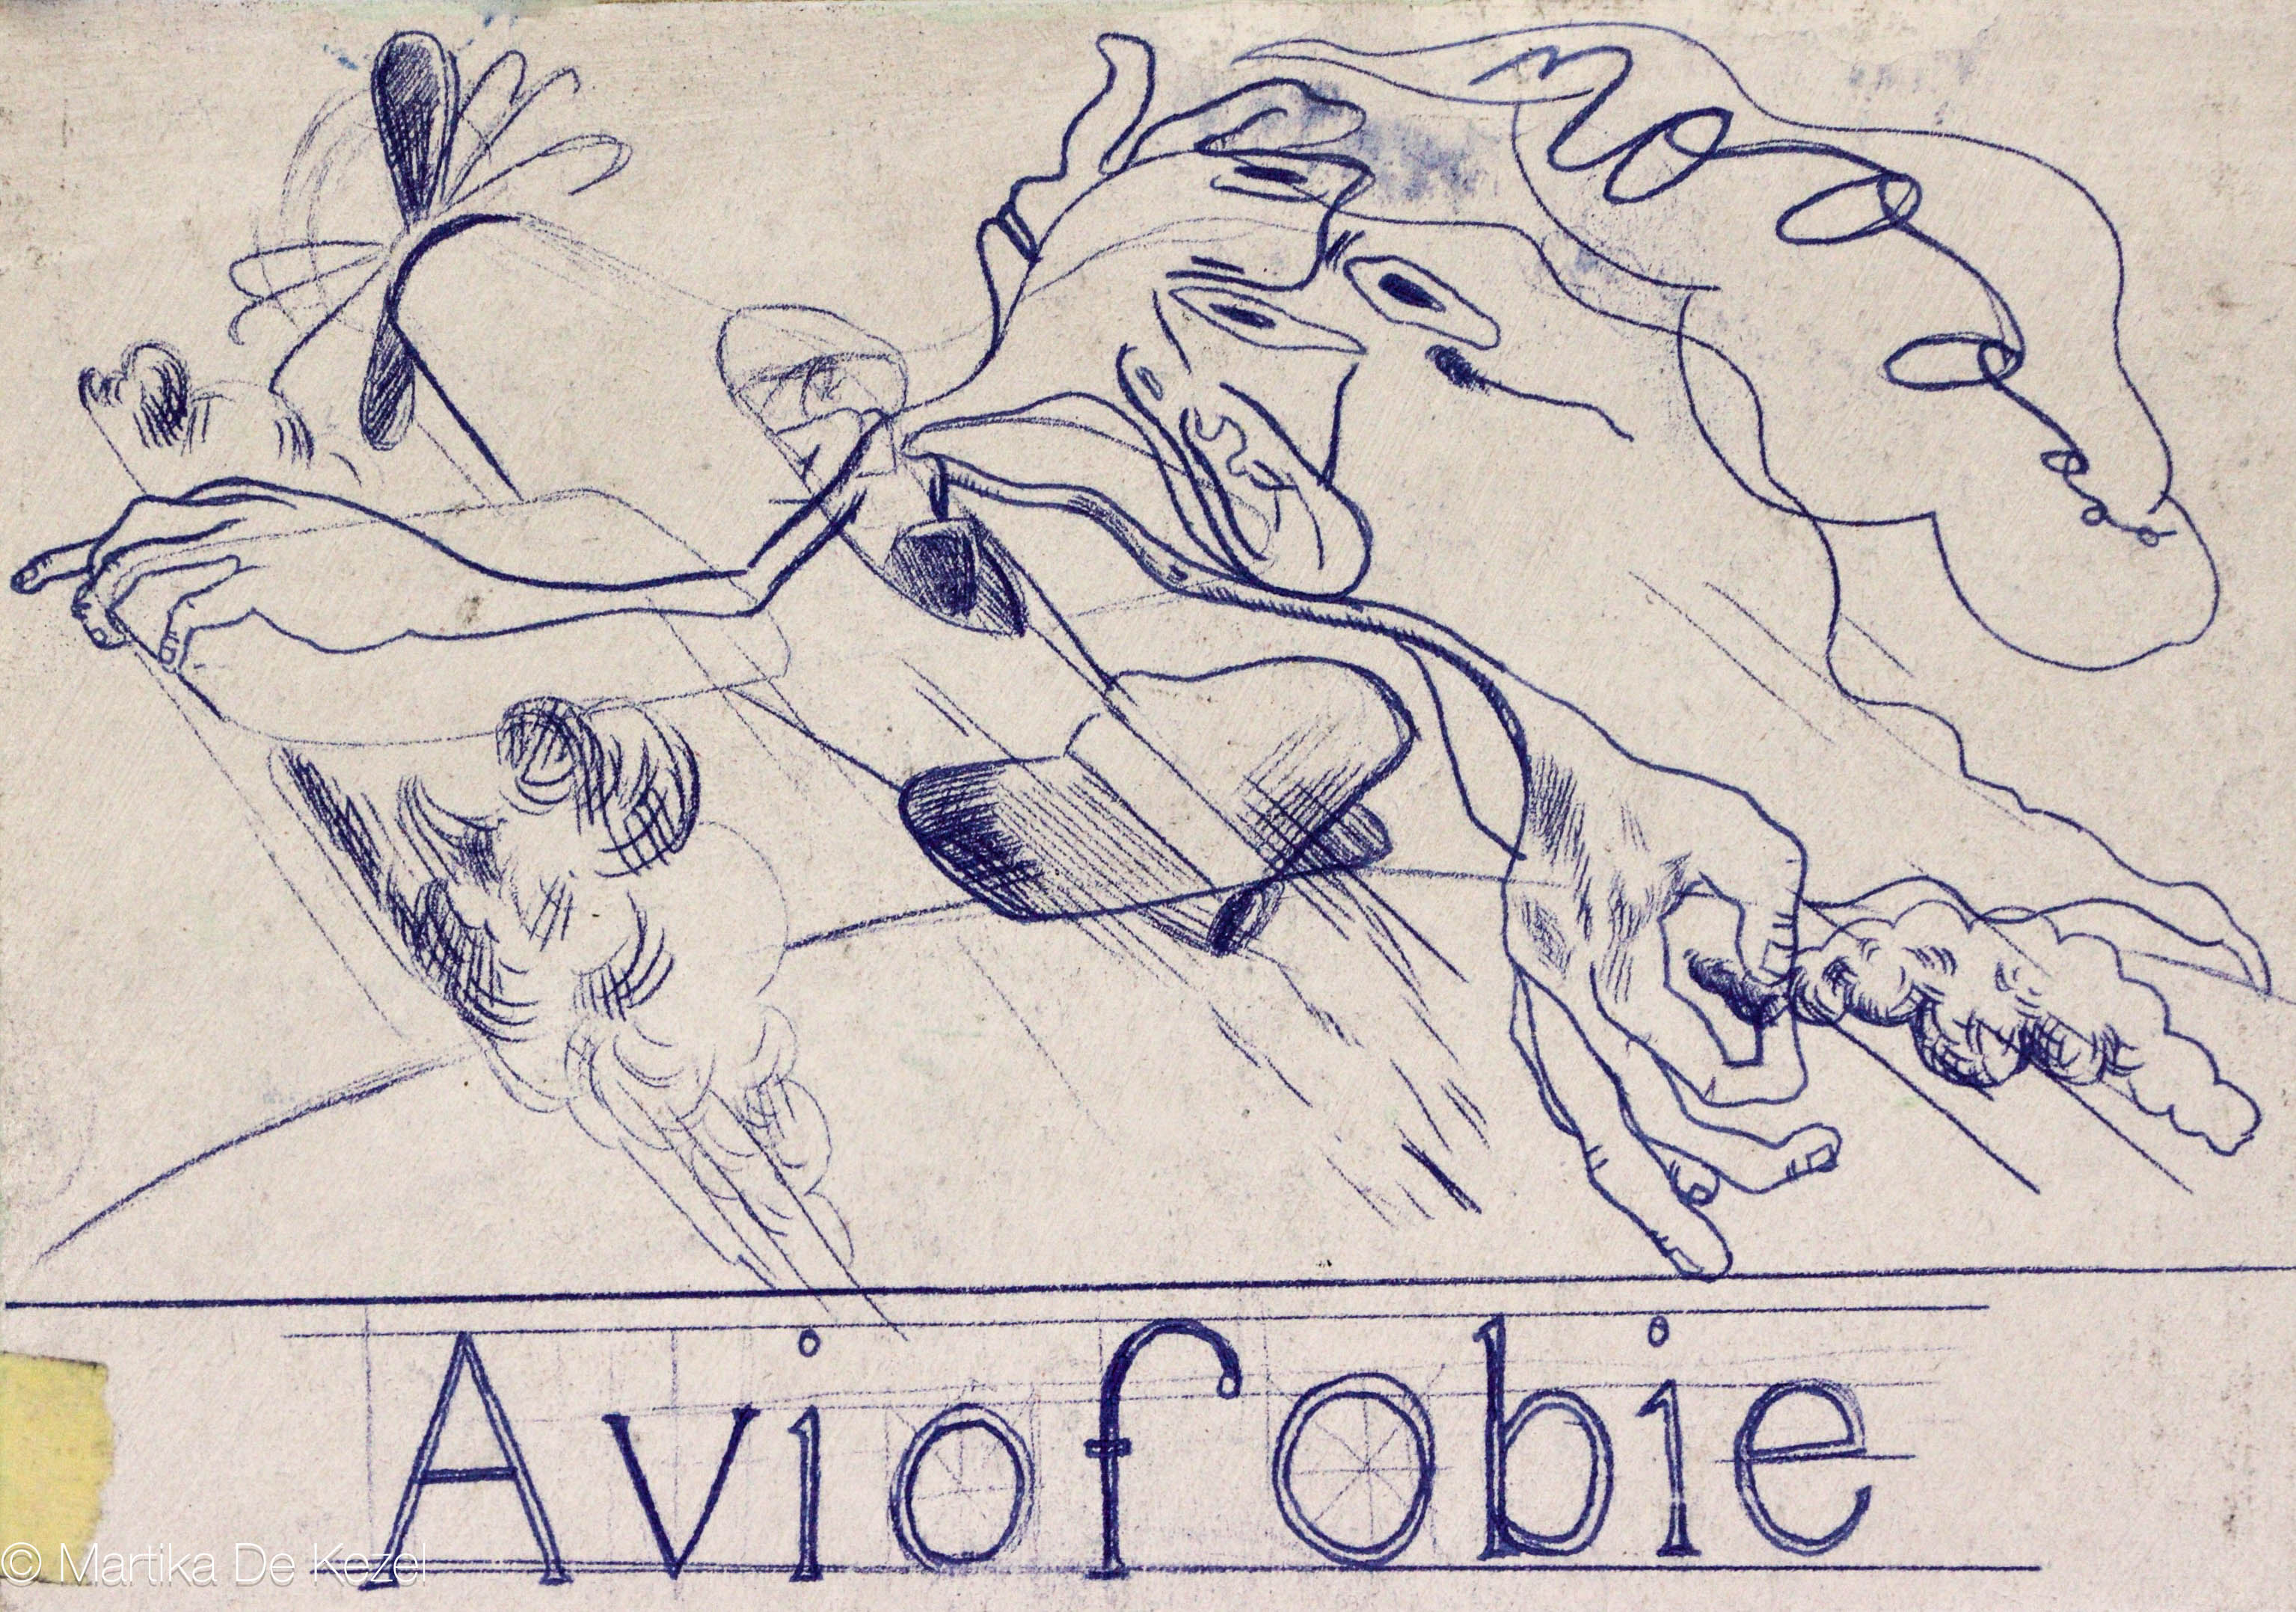 nooooooo
Aviofobie
© Martika De Kezel